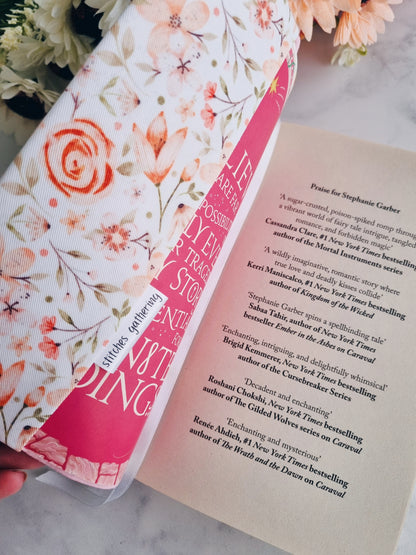 stitches gathering
Praise for Stephanie Garber
'A sugar-crusted, poison-spiked romp through
a vibrant world of fairy tale intrigue, tangled
romance, and forbidden magic'
Cassandra Clare, #1 New York Times bestselling
author of the Mortal Instruments series
'A wildly imaginative, romantic story where
true love and deadly kisses collide'
Kerri Maniscalco, #1 New York Times bestselling
author of Kingdom of the Wicked
'Stephanie Garber spins a spellbinding tale'
Sabaa Tahir, author of New York Times
bestseller Ember in the Ashes on Caraval
'Enchanting, intriguing, and delightfully whimsical'
Brigid Kemmerer, New York Times bestselling
author of the Cursebreaker Series
'Decadent and enchanting'
Roshani Chokshi, New York Times bestselling
author of The Gilded Wolves series on Caraval
'Enchanting and mysterious'
Renée Ahdieh, #1 New York Times bestselling
author of The Wrath and the Dawn on Caraval